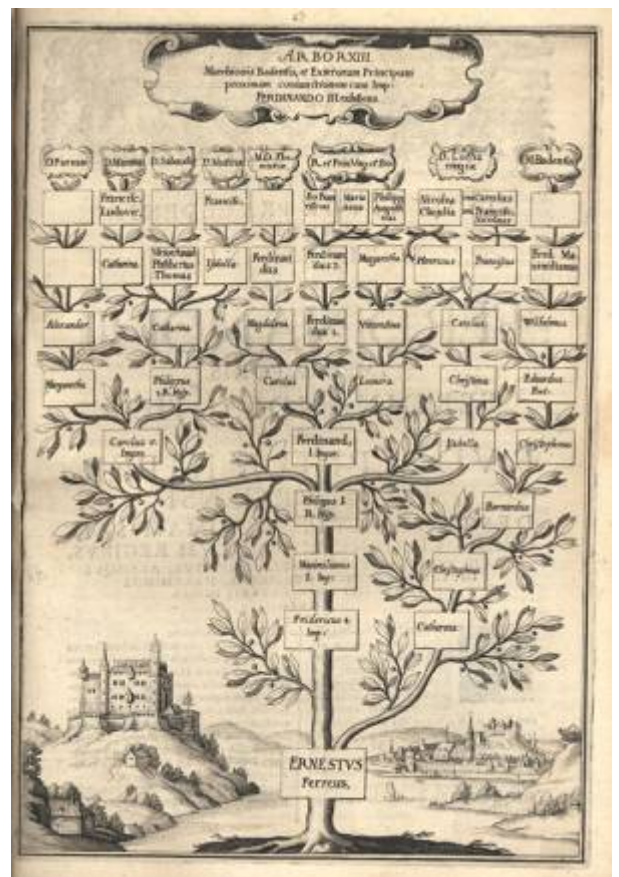 ARBOR XIII.
Marchionis Badensis, et Exterorum Principum
proximam coniunctionem cum Imp:
FERDINANDO III
D. Sabaudi
D. Mutinae
D. Lotha
ringiae
M. Badensis
Francisc.
Ludovic.
Francisc.
Maria
Anna
Philipp
Nicolea
Claudia
Carolus
Francisc.
Nicolaus
Catharina
Victor Amad
Philibertus
Thomas
Isabella
Ferdinan
dus
Ferdinan
dus 2.
Margaretha
Henricus
Franciscus
Ferd. Ma
ximilianus
Alexander
Catharina
Magdalena
Ferdinan
dus 2.
Vincentius
Carolus
Wilhelmus
Margaretha
Philippus
2. R. Hisp.
Carolus
Leonora
Christina
Eduardus
Fort.
Carolus 5.
Imper.
Ferdinand,
I. Imper.
Isabella
Christophorus
Philippus I
R. Hisp.
Bernardus
Maximilianus
I. Imp:
Christophorus
Fridericus 4
Imp:
Catharina
ERNESTVS
Ferreus,